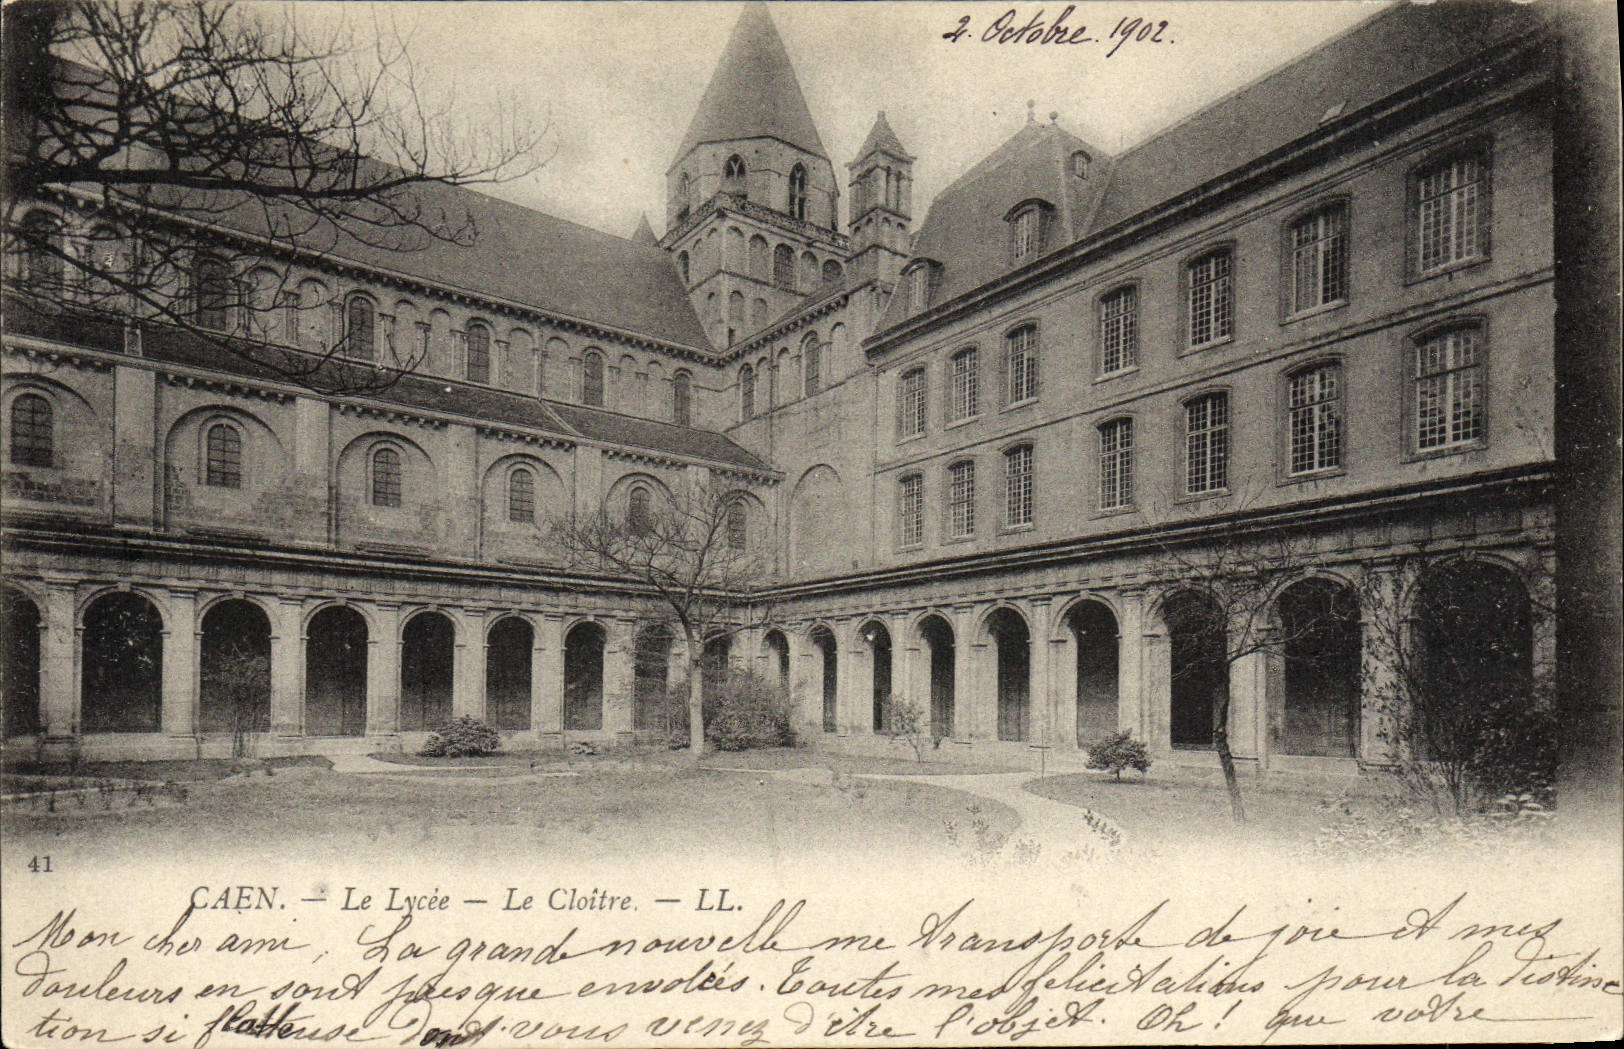 2. Octobre. 1902.
41
CAEN. — Le Lycée — Le Cloître. — LL.
Mon cher ami, La grande nouvelle me transporte de joie et mes
douleurs en sont presque envolées. Toutes mes félicitations pour la distinc
tion si flatteuse dont vous venez d'être l'objet. Oh! que votre